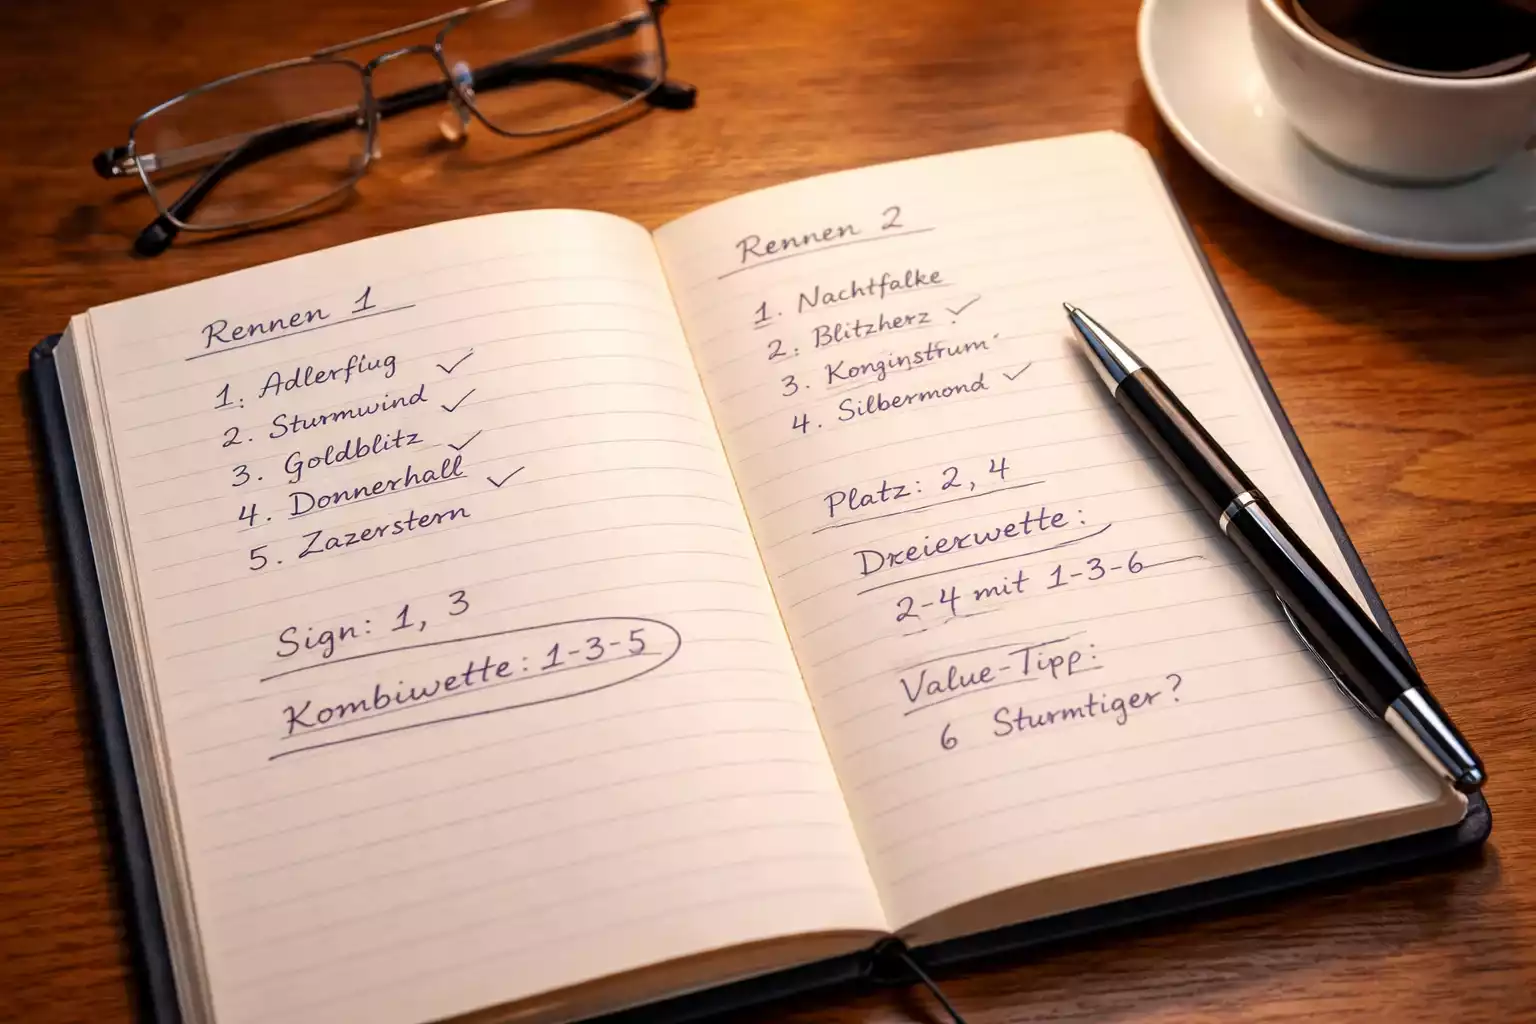 Rennen 1
1. Adlerflug ✓
2. Sturmwind ✓
3. Goldblitz ✓
4. Donnerhall ✓
5. Zazerstern
Sign: 1, 3
Kombiwette: 1-3-5
Rennen 2
1. Nachtfalke
2. Blitzherz ✓
3. Konginstrum
4. Silbermond ✓
Platz: 2, 4
Dreierwette:
2-4 mit 1-3-6
Value-Tipp:
6 Sturmtiger?